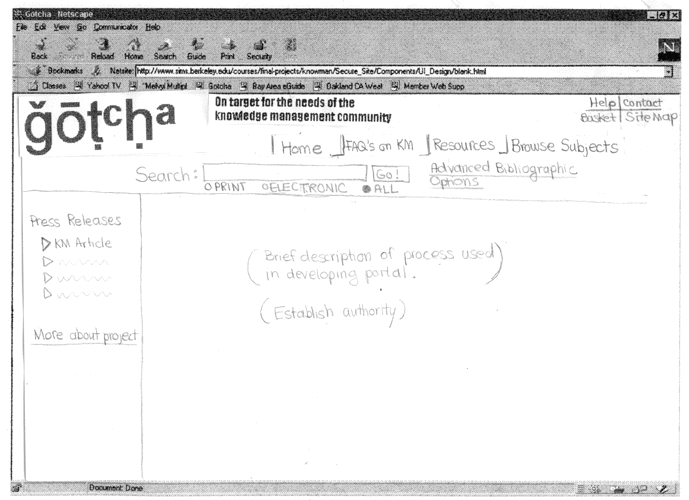 Gotcha - Netscape
File Edit View Go Communicator Help
Back Reload Home Search Guide Print Security
Bookmarks Netsite: http://www.sims.berkeley.edu/courses/final-projects/knowman/Secure_Site/Components/UI_Design/blank.html
Classes Yahoo! TV "Melvyl Multipl Gotcha Bay Area eGuide Oakland CA Weat Member Web Supp
ğōṭcḥa
On target for the needs of the
knowledge management community
Help | Contact
Basket | Site Map
Home FAQ's on KM Resources Browse Subjects
Search: Go!
PRINT ELECTRONIC ALL
Advanced Bibliographic
Options
Press Releases
KM Article
More about project
(Brief description of process used
in developing portal.)
(Establish authority)
Document: Done